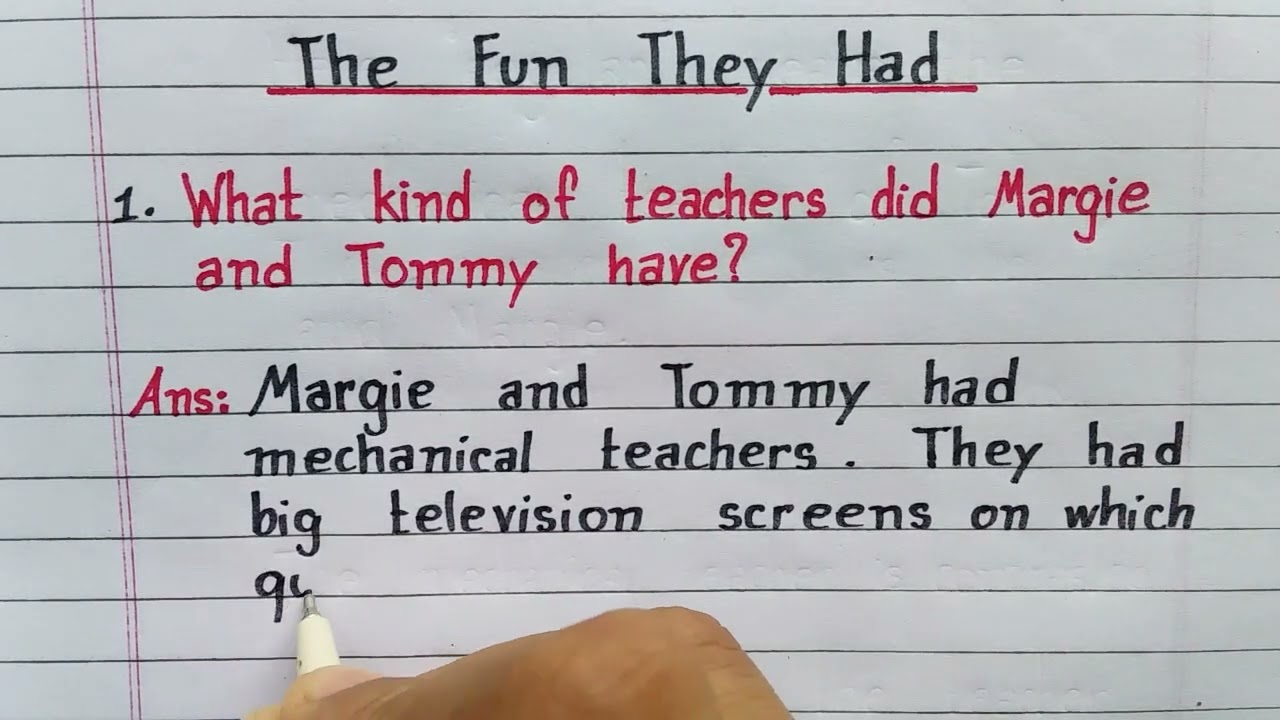 The Fun They Had
1. What kind of teachers did Margie
and Tommy have?
Ans: Margie and Tommy had
mechanical teachers. They had
big television screens on which